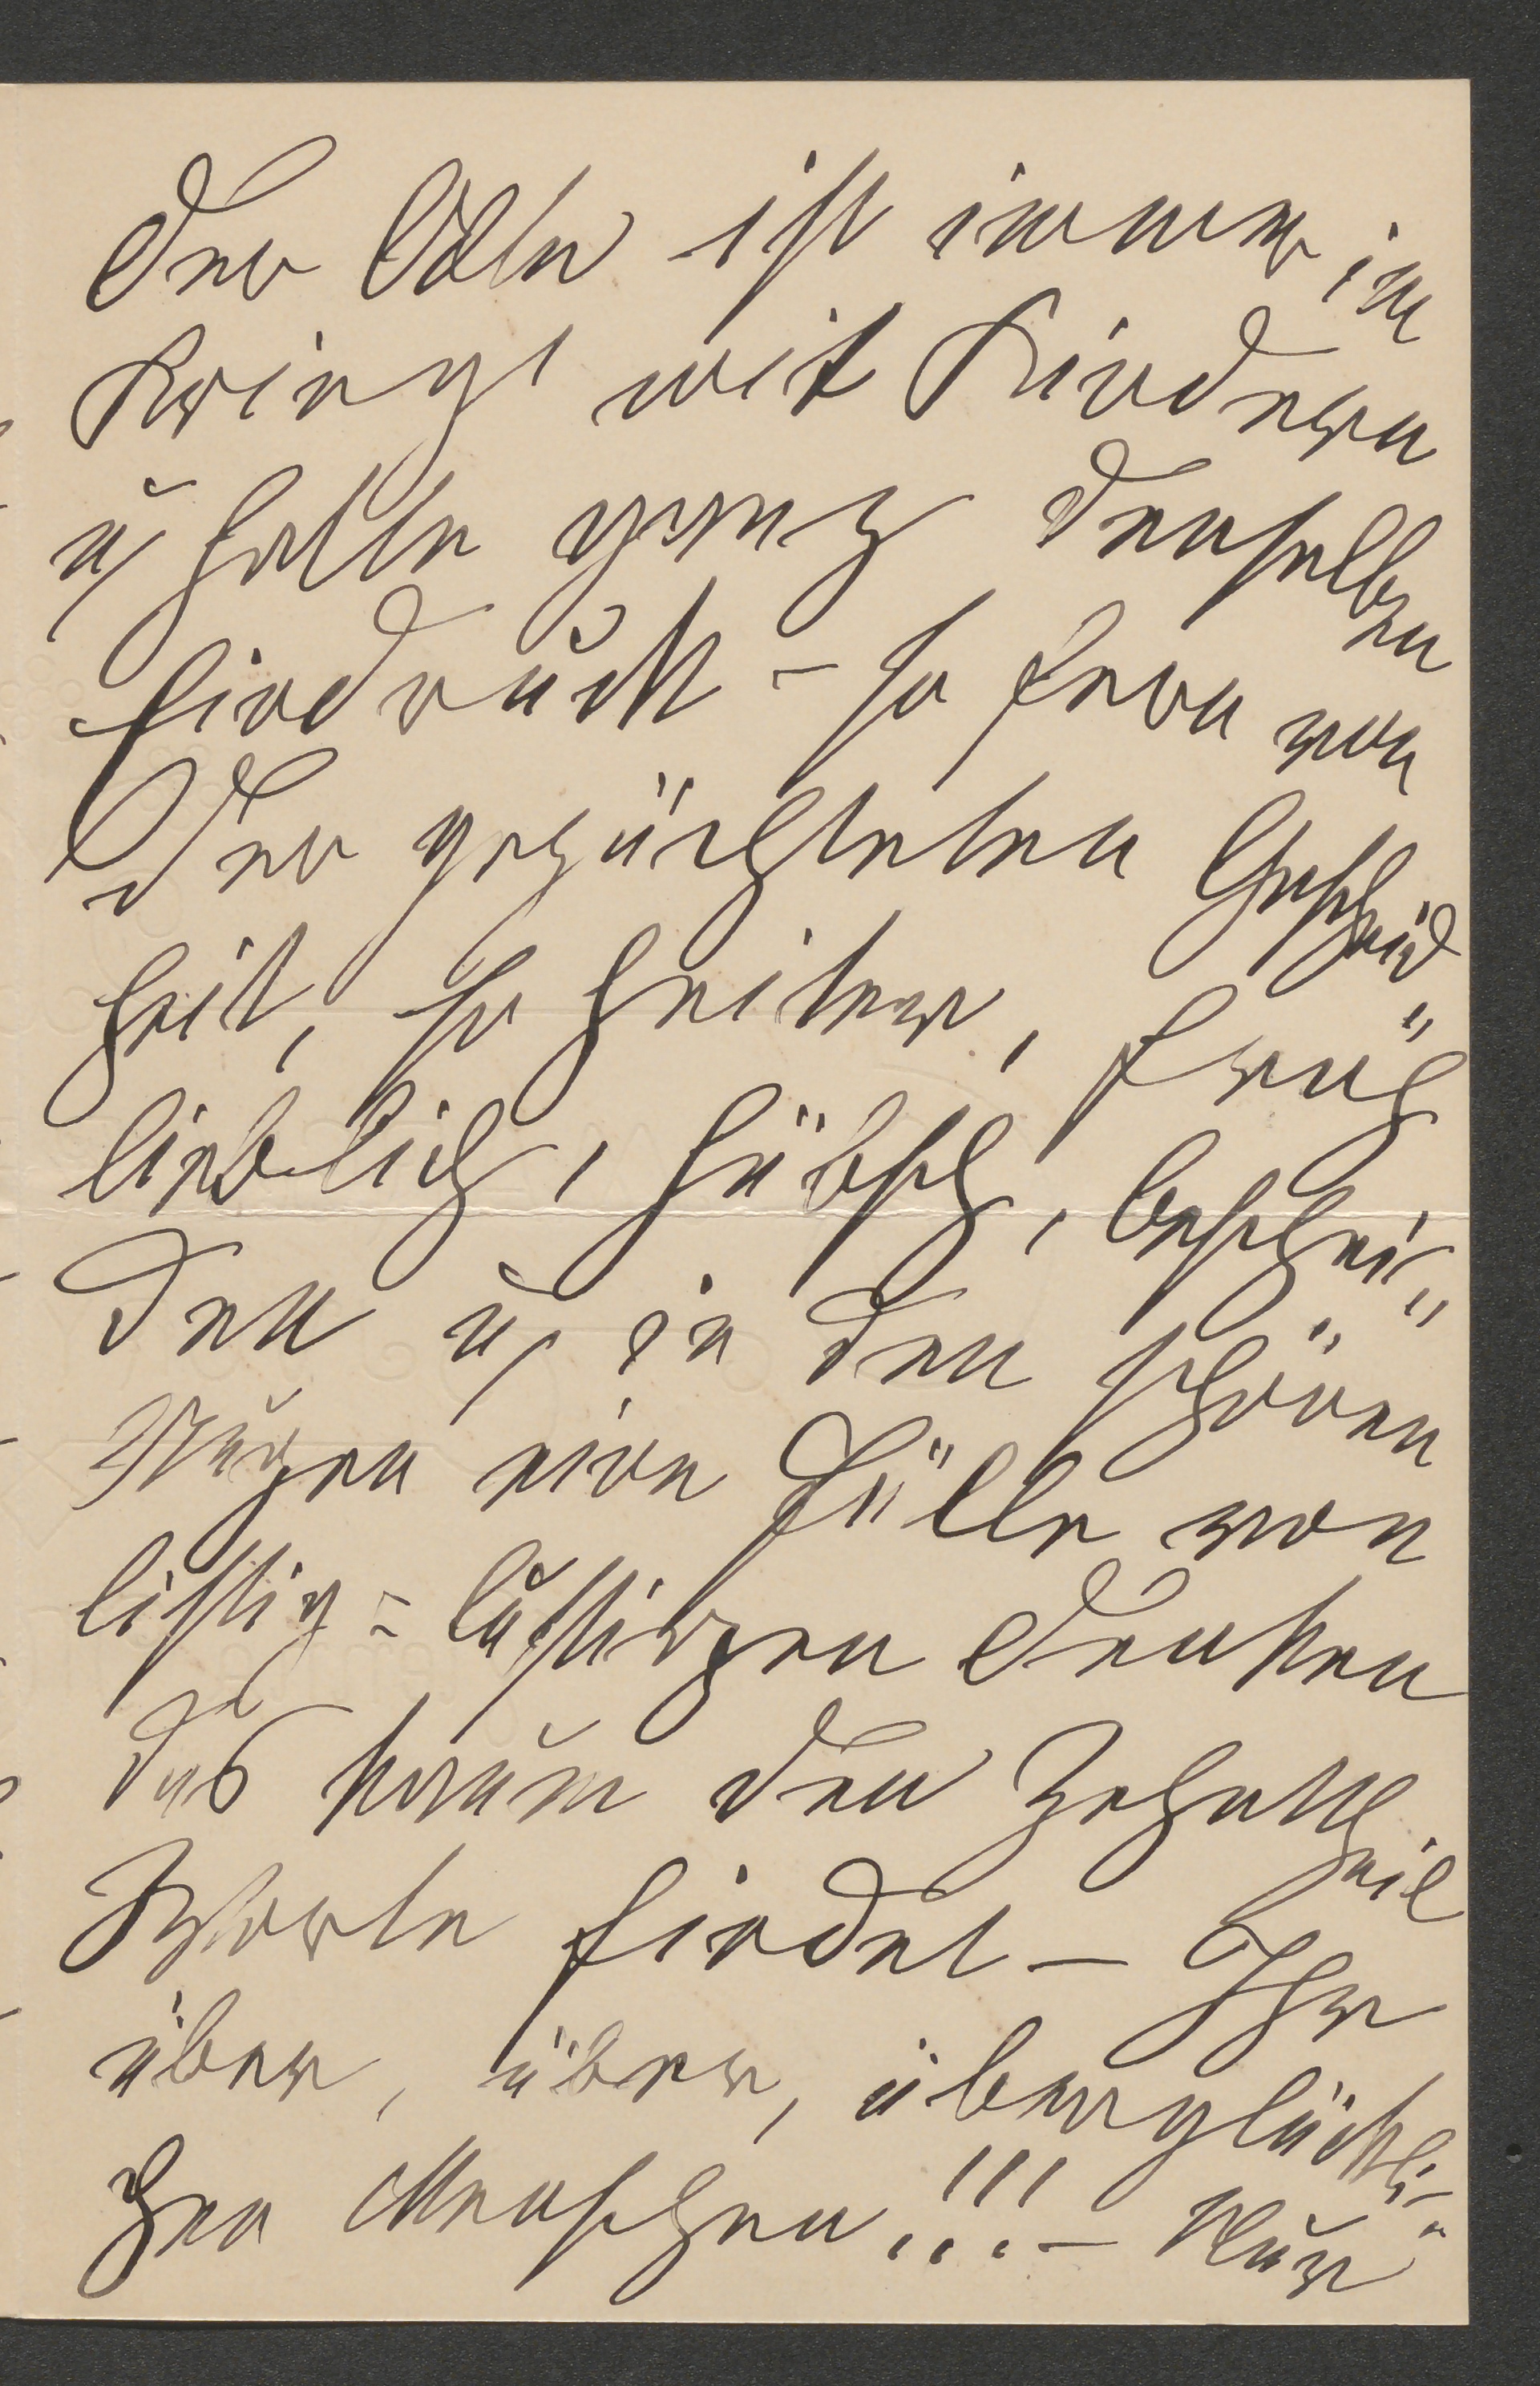 Der Vater ist immer im
Kriege mit Kindern
u. hatte ganz denselben
Eindruck – so fern von
der gezüchteten Gescheid
heit, so heiter, fröh"
lieblich, hübsch, beschei"
den u. in den schönen
Augen eine Fülle von
listig=lustigen Denken
das kaum den Zehntheil
Worte findet – Ihr
über, über, überglückli-
chen Menschen!!! – Nur